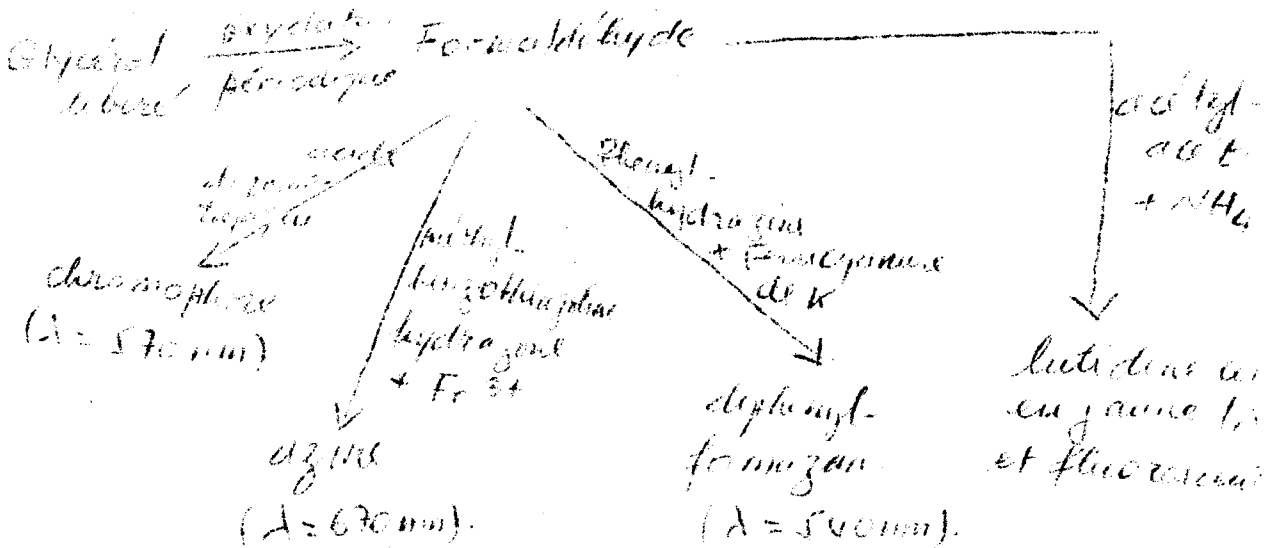 Glycérol
libéré
périodique
Formaldéhyde
acide
chromophore
(λ = 570 nm)
méthyl-
hydrazone
+ Fe 3+
azine
(λ = 670 nm).
Phenyl-
hydrazine
+ Ferricyanure
de K
diphenyl-
formazan
(λ = 540 nm).
acétyl-
acét
+ NH4
lutidine
en jaune
et fluorescent